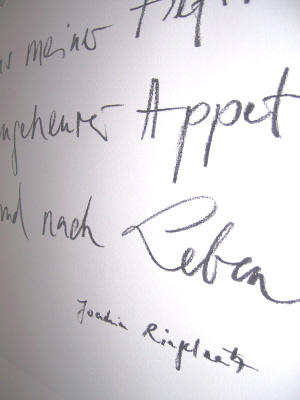 us meiner
ngeheurer Appet
nd nach Leben
Joachim Ringelnatz